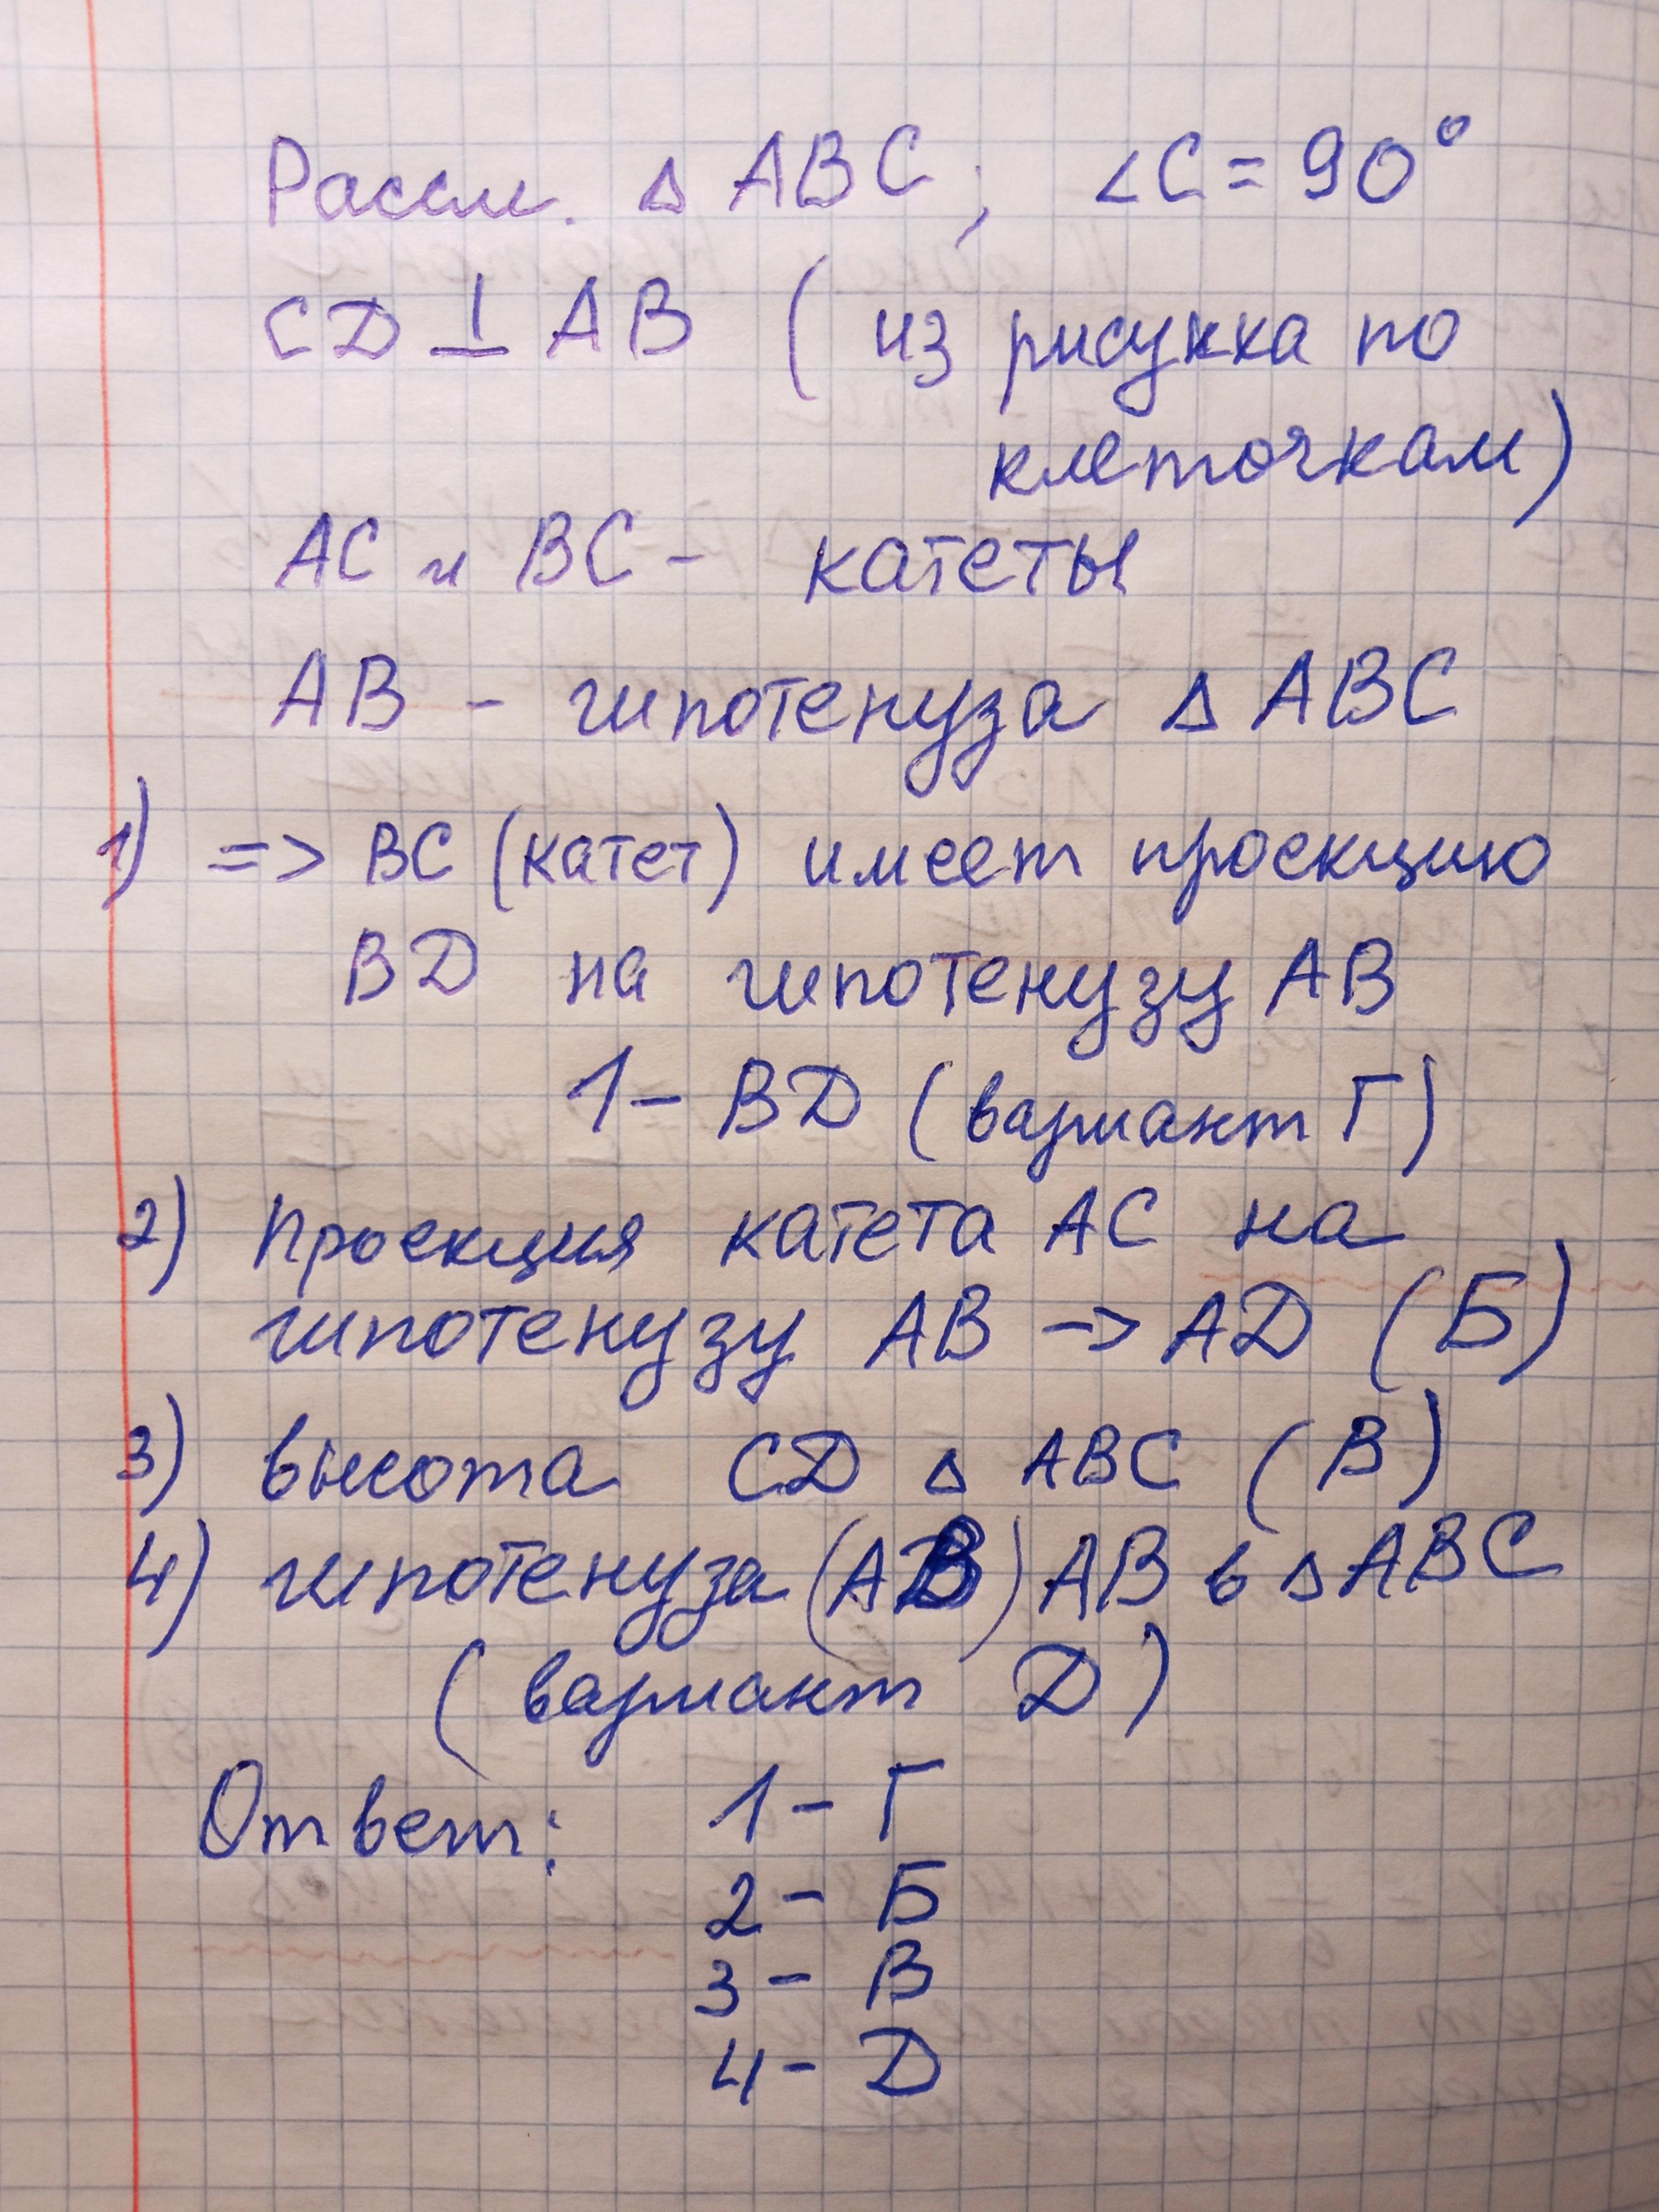 Рассм. △ ABC; ∠C = 90°
CD ⊥ AB ( из рисунка по
клеточкам)
AC и BC - катеты
AB - гипотенуза △ ABC
1) => BC (катет) имеет проекцию
BD на гипотенузу AB
1 - BD (вариант Г)
2) Проекция катета AC на
гипотенузу AB -> AD (Б)
3) высота CD △ ABC (В)
4) гипотенуза (AB) AB в △ ABC
( вариант Д)
Ответ: 1 - Г
2 - Б
3 - В
4 - Д